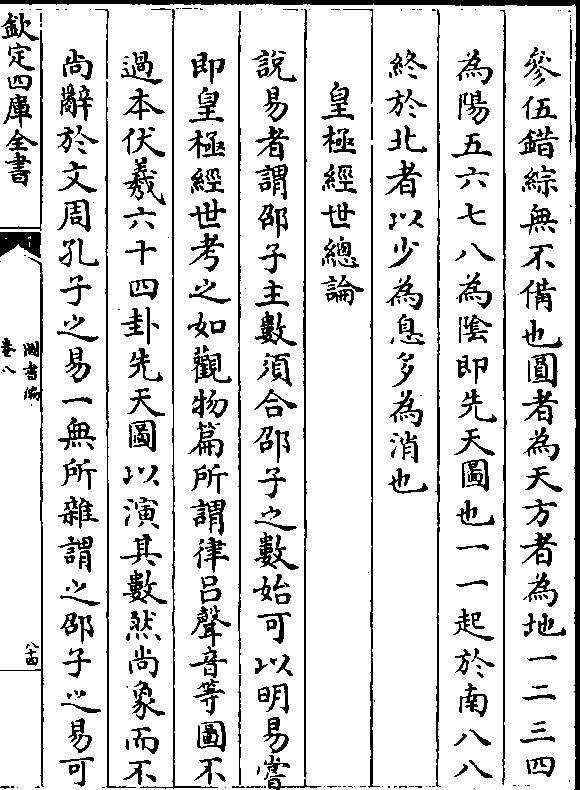 參伍錯綜無不備也圓者為天方者為地一二三四
為陽五六七八為隂即先天圖也一一起於南八八
終於北者以少為息多為消也
皇極經世總論
說易者謂邵子主數須合邵子之數始可以明易嘗
即皇極經世考之如觀物篇所謂律吕聲音等圖不
過本伏羲六十四卦先天圖以演其數然尚象而不
尚辭於文周孔子之易一無所雜謂之邵子之易可
欽定四庫全書
圖書編
卷八
八十四